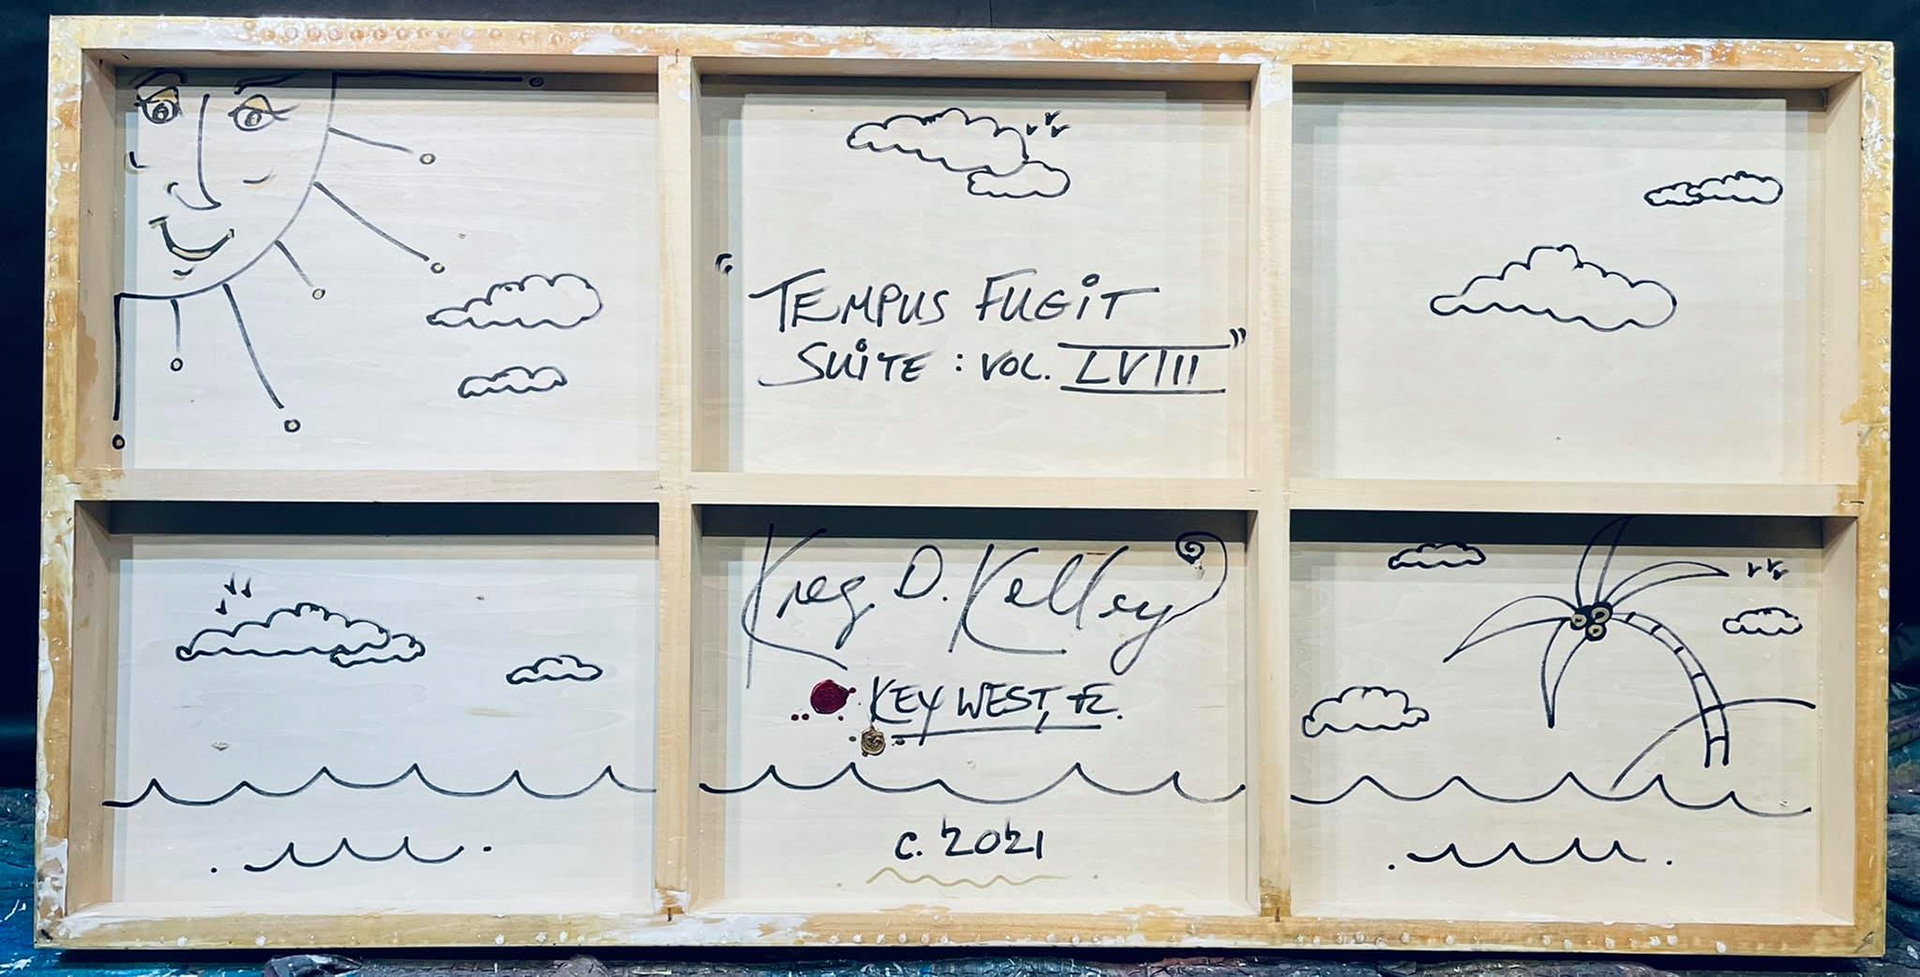 "TEMPUS FUGIT
SUITE : VOL. LVIII"
Kreg D. Kelley
KEY WEST, FL.
c. 2021